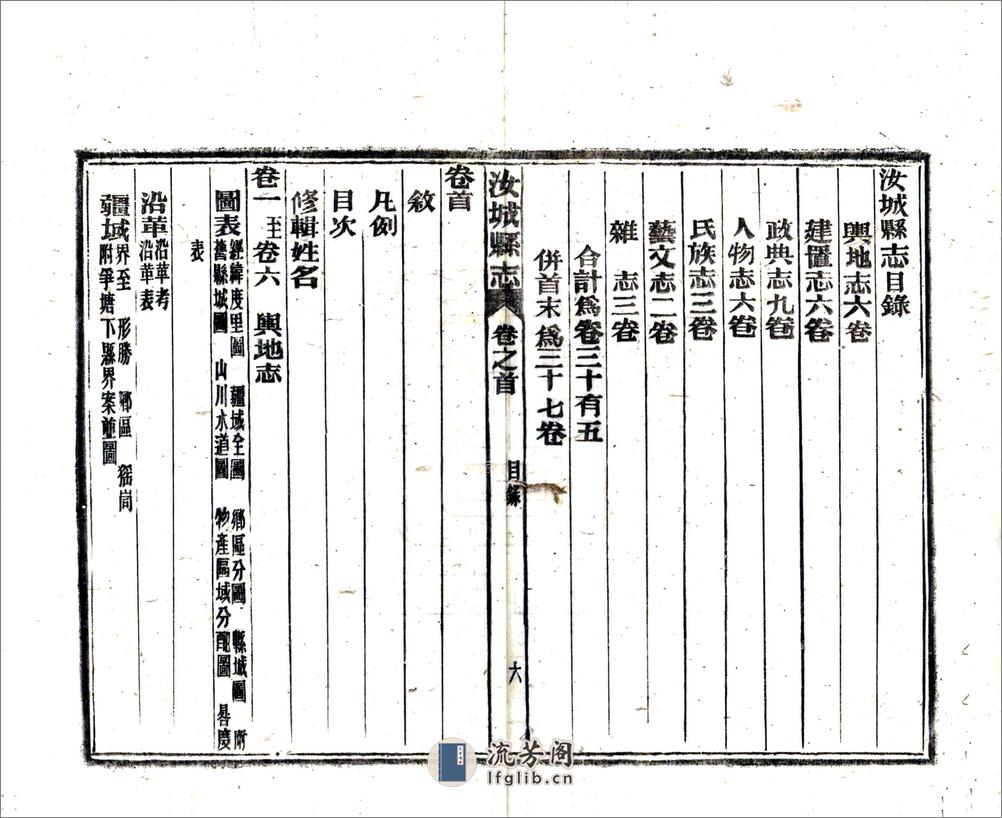 汝城縣志目錄
輿地志六卷
建置志六卷
政典志九卷
人物志六卷
民族志三卷
藝文志二卷
雜　志三卷
合計爲卷三十有五
併首末爲三十七卷
汝城縣志 卷之首 目錄 六
卷首
敘
凡例
目次
修輯姓名
卷一至卷六　輿地志
圖表 經緯度里圖　疆域全圖　鄉區分圖　縣城圖　附
舊縣城圖　山川水道圖　物產區域分配圖　晷度
表
沿革 沿革考
沿革表
疆域 界至　形勝　鄉區　猺峝
附爭塘下縣界案並圖
流芳阁
lfglib.cn